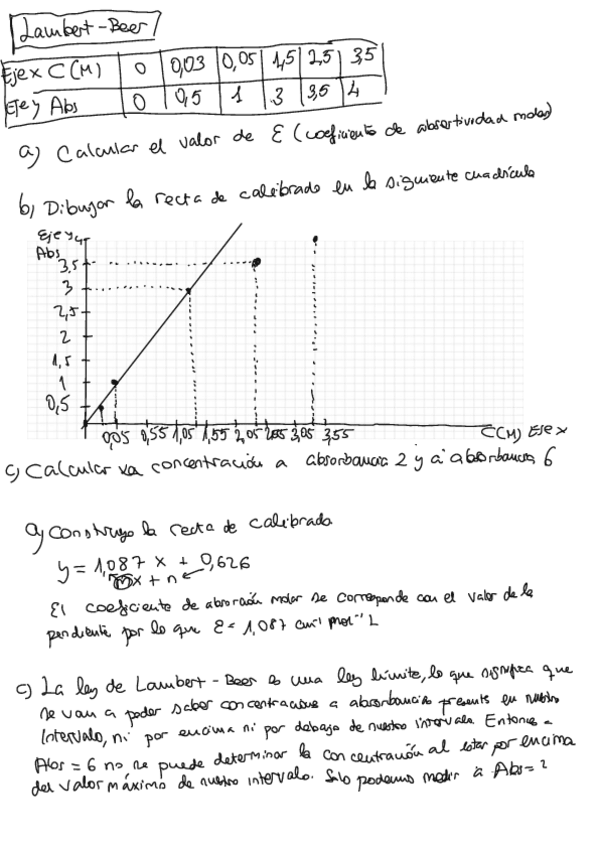 Lambert-Beer
Eje x C(M) 0 0,03 0,05 1,5 2,5 3,5
Eje y Abs 0 0,5 1 3 3,5 4
a) Calcular el valor de ε (coeficiente de absortividad molar)
b) Dibujar la recta de calibrado en la siguiente cuadrícula
Eje y
Abs
4
3,5
3
2,5
2
1,5
1
0,5
0,05 0,55 1,05 1,55 2,05 2,55 3,05 3,55
C(M) Eje x
c) Calcular la concentración a absorbancia 2 y a absorbancia 6
a) Construyo la recta de calibrado
y = 1,087 x + 0,626
mx + n
El coeficiente de absorción molar se corresponde con el valor de la
pendiente por lo que ε = 1,087 cm⁻¹ mol⁻¹ L
c) La ley de Lambert-Beer es una ley límite, lo que significa que
se van a poder saber concentraciones a absorbancias presents en nuestro
intervalo, ni por encima ni por debajo de nuestro intervalo. Entonces a
Abs = 6 no se puede determinar la concentración al estar por encima
del valor máximo de nuestro intervalo. Solo podemos medir a Abs = 2